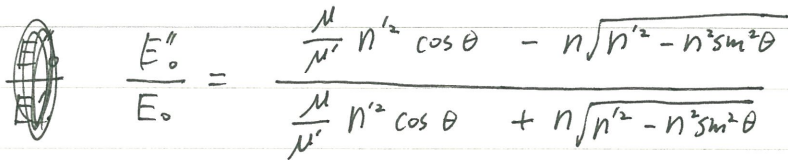 E₀″/E₀ = (μ/μ′ n′² cos θ − n√(n′² − n² sin² θ)) / (μ/μ′ n′² cos θ + n√(n′² − n² sin² θ))